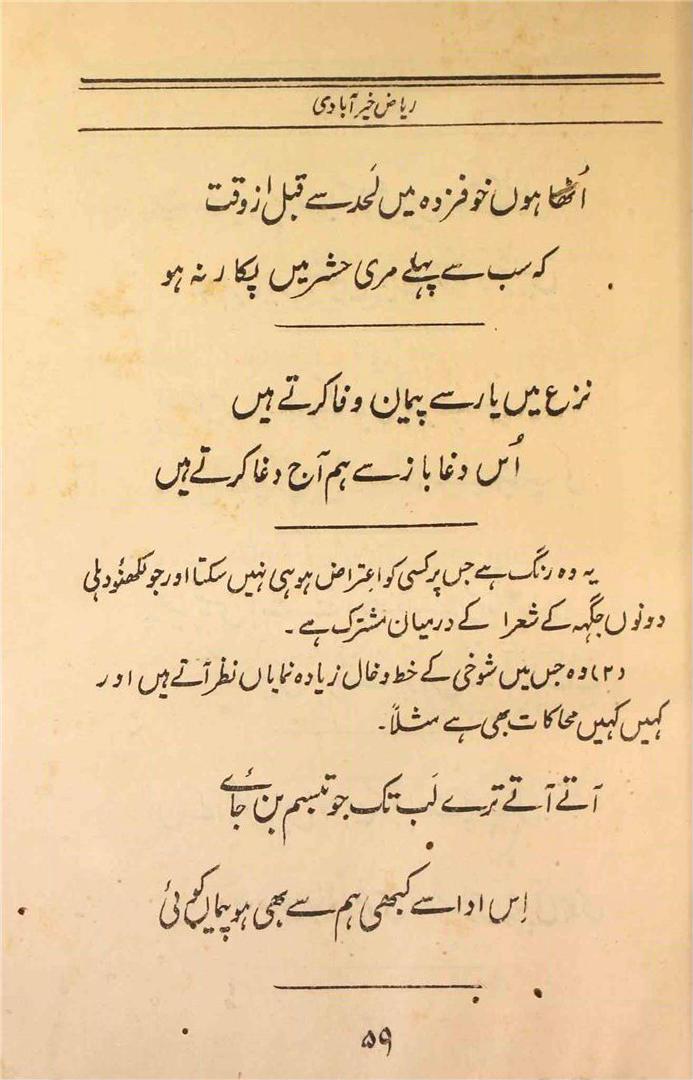 ریاض خیرآبادی
اُٹھا ہوں خوفزدہ میں لَحد سے قبل از وقت
کہ سب سے پہلے مری حشر میں پکار نہ ہو
نزع میں یار سے پیمانِ وفا کرتے ہیں
اُس دغا باز سے ہم آج دغا کرتے ہیں
یہ وہ رنگ ہے جس پر کسی کو اعتراض ہو ہی نہیں سکتا اور جو لکھنؤ و دہلی
دونوں جگہہ کے شعرا کے درمیان مشترک ہے۔
(۲) وہ جس میں شوخی کے خط و خال زیادہ نمایاں نظر آتے ہیں اور
کہیں کہیں محاکات بھی ہے مثلاً۔
آتے آتے ترے لَب تک جو تبسم بن جائے
اِس ادا سے کبھی ہم سے بھی ہو پیماں کوئی
۵۹